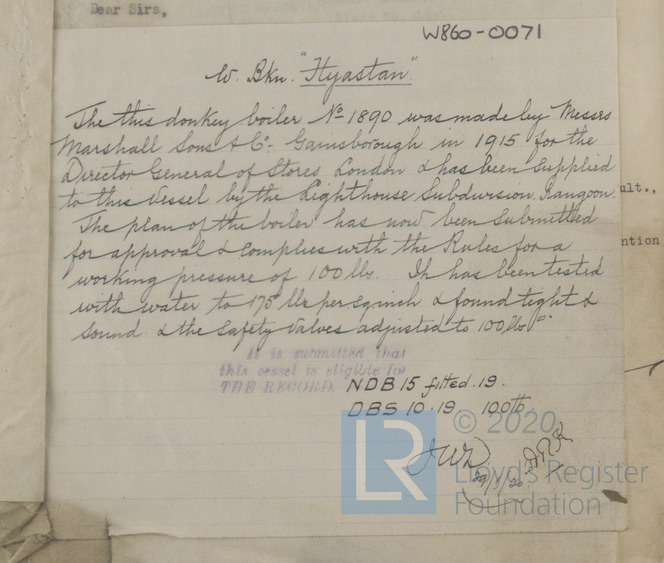 Dear Sirs,
W860-0071
W. Bkn. "Hyastan".
The this donkey boiler No 1890 was made by Messrs
Marshall Sons & Co. Gainsborough in 1915 for the
Director General of Stores London & has been supplied
to this vessel by the Lighthouse Subdivision, Rangoon.
The plan of the boiler has now been submitted
for approval & complies with the Rules for a
working pressure of 100 lbs. It has been tested
with water to 175 lbs per sq inch & found tight &
sound & the safety valves adjusted to 100 lbs
It is submitted that
this vessel is eligible for
THE RECORD.
NDB 15 fitted . 19.
DBS 10.19 100 lb
ult.,
ntion
© 2020
LR
Lloyd's Register
Foundation